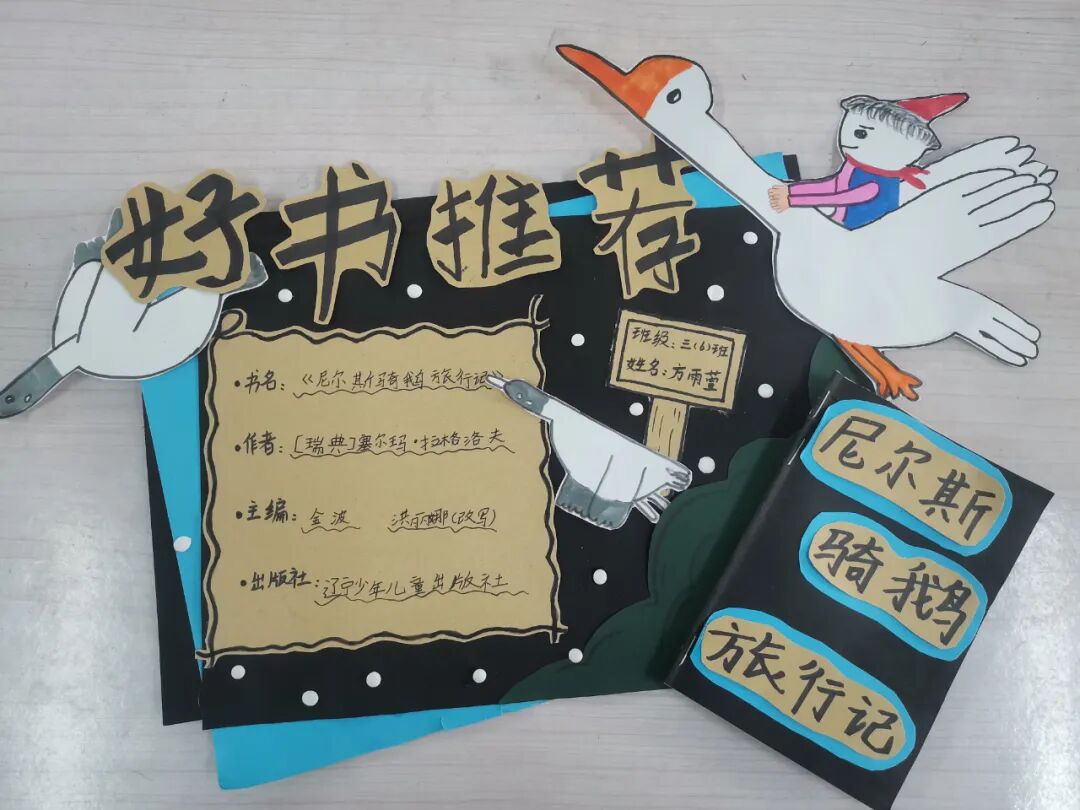 好书推荐
班级：三（6）班
姓名：方雨萱
•书名：《尼尔斯骑鹅旅行记》
•作者：[瑞典]塞尔玛·拉格洛夫
•主编：金波 洪丽娜（改写）
•出版社：辽宁少年儿童出版社
尼尔斯
骑鹅
旅行记